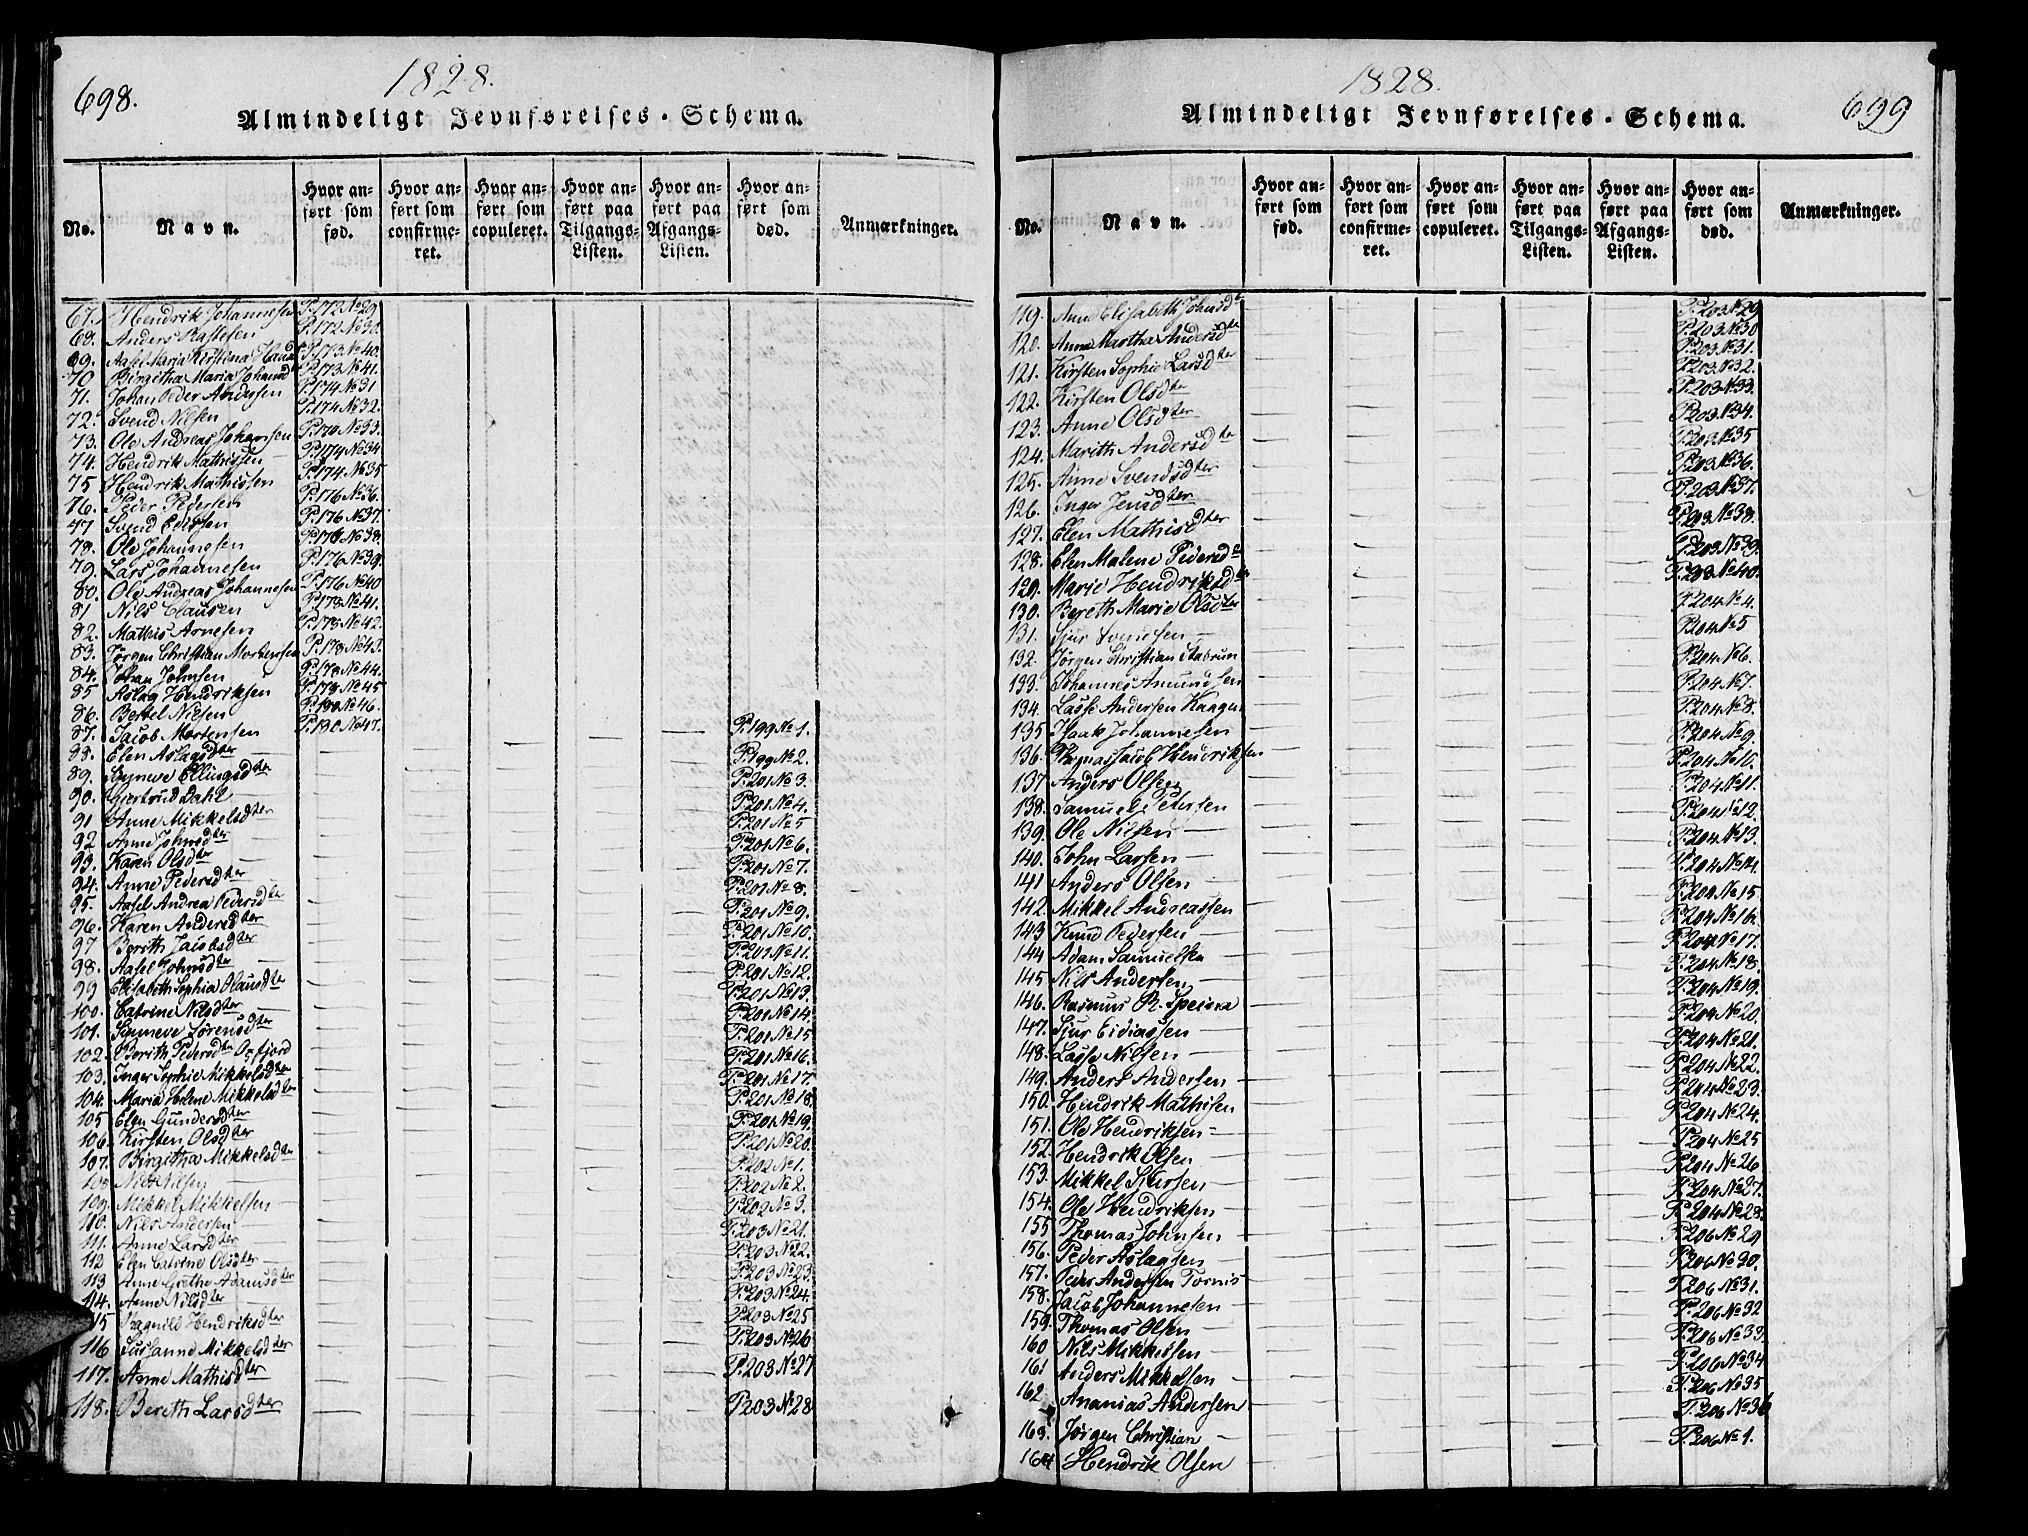 698.
1828.
Almindeligt Jevnførelses-Schema.
No.
Navn.
Hvor anført som fød.
Hvor anført som confirmeret.
Hvor anført som copuleret.
Hvor anført paa Tilgangs-Listen.
Hvor anført paa Afgangs-Listen.
Hvor anført som død.
Anmærkninger.
67. Hendrik Johannesen P.172 No29
68. Anders P.172 No
69. Aasel Maria Kirstiena P.173 No40.
70 Birgitha Maria Johansd P.173 No41.
71. Johan Peder Andersen P.174 No31
72. Svend Nilsen P.174 No32.
73. Ole Andreas Johansen P.174 No33.
74. Hendrik Mathissen P.174 No34
75 Hendrik Mathissen P.174 No35
76. Peder Pedersen P.176 No36.
47 Svend P.176 No37.
78. Ole Johannesen P.176 No38.
79. Lars Johannesen P.176 No39.
80. Ole Andreas Johannesen P.176 No40
81 Nils Clausen P.178 No41.
82. Mathis Arnesen P.178 No42.
83. Jørgen Christian Mortensen P.178 No43.
84. Johan Johnsen P.178 No44.
85 Aslag Hendriksen P.178 No45
86. Bertel Nielsen No46.
87. Jacob Mortensen No47.
88. Elen Aslagsdter P.199 No1.
89. Synneve Ellingsdter P.199 No2.
90. Gjertrud Dahl P.201 No3.
91 Anne Mikkelsdter P.201 No4.
92 Anne Johnsdter P.201 No5
93. Karen Olsdter P.201 No6.
94. Anne Pedersdter P.201 No7.
95. Aasel Andrea Pedersdter P.201 No8.
96. Karen Andersdter P.201 No9.
97 Berith Jacobsdter P.201 No10.
98. Aasel Johnsdter P.201 No11.
99 Elisabeth Sophia Olausdter P.201 No12.
100. Catrine Nilsdter P.201 No13.
101. Synneve Sørensdter P.201 No14.
102. Berith Pedersdter Oxfjord P.201 No15
103. Inger Sophie Mikkelsdter P.201 No16.
104. Maria Helene Mikkelsdter P.201 No17.
105 Elen Gundersdter P.201 No18.
106. Kirsten Olsdter P.201 No19.
107. Birgitha Mikkelsdter P.201 No20.
108 Nils Nilsen P.202 No1.
109. Mikkel Mikkelsen P.202 No2.
110. Nils Andersen P.202 No3.
111. Anne Larsdter P.203 No21.
112 Elen Catrine Olsdter P.203 No22.
113 Anne Grethe Adamsdter P.203 No23.
114. Anne Nilsdter P.203 No24.
115 Ragnild Hendriksdter P.203 No25
116 Susanne Mikkelsdter P.203 No26
117. Anne Mathisdter P.203 No27
118. Bereth Larsdter P.203 No28
1828.
699
Almindeligt Jevnførelses-Schema.
No.
Navn.
Hvor anført som fød.
Hvor anført som confirmeret.
Hvor anført som copuleret.
Hvor anført paa Tilgangs-Listen.
Hvor anført paa Afgangs-Listen.
Hvor anført som død.
Anmærkninger.
119. Ane Elisabeth Johnsdtr P.203 No29
120. Anne Martha Andersdter P.203 No30
121. Kirsten Sophie Larsdter P.203 No31.
122. Kirsten Olsdtr P.203 No32.
123. Anne Olsdter P.203 No33.
124. Marith Andersdter P.203 No34.
125. Anne Svendsdter P.203 No35
126. Inger Jensdter P.203 No36.
127. Elen Mathisdter P.203 No37.
128. Elen Malene Pedersdtr P.203 No38.
129. Marie Hendriksdtr P.203 No39.
130. Bereth Marie Olsdter P.203 No40.
131. Sjur Svendsen P.204 No4.
132. Jørgen Christian P.204 No5
133. Johannes Amundsen P.204 No6.
134. Lasse Andersen P.204 No7.
135 Isaak Johannesen P.204 No8.
136. Thomas Jacob Hendriksen P.204 No9
137. Anders Olsen P.204 No10.
138. Samuel Petersen P.204 No11.
139. Ole Nilsen P.204 No12.
140. John Larsen P.204 No13.
141 Anders Olsen P.204 No14.
142. Mikkel Andreassen P.204 No15
143 Knud Pedersen P.204 No16.
144 Adam Samuelsen P.204 No17.
145 Nils Andersen P.204 No18.
146. Rasmus R. P.204 No19.
147. Sjur Eidiassen P.204 No20
148. Lasse Nilsen P.204 No21.
149. Anders Andersen P.204 No22.
150. Hendrik Mathisen P.204 No23.
151. Ole Hendriksen P.204 No24.
152. Hendrik Olsen P.204 No25
153. Mikkel P.204 No26
154. Ole Hendriksen P.204 No27.
155 Thomas Johnsen P.204 No28.
156. Peder Aslagsen P.206 No29
157. Peder Andersen Tornis P.206 No30.
158. Jacob Johannesen P.206 No31.
159. Thomas Olsen P.206 No32
160 Nils Mikkelsen P.206 No33.
161 Anders Mikkelsen P.206 No34
162 Ananias Andersen P.206 No35
163. Jørgen Christian P.206 No36
164 Hendrik Olsen P.206 No1.